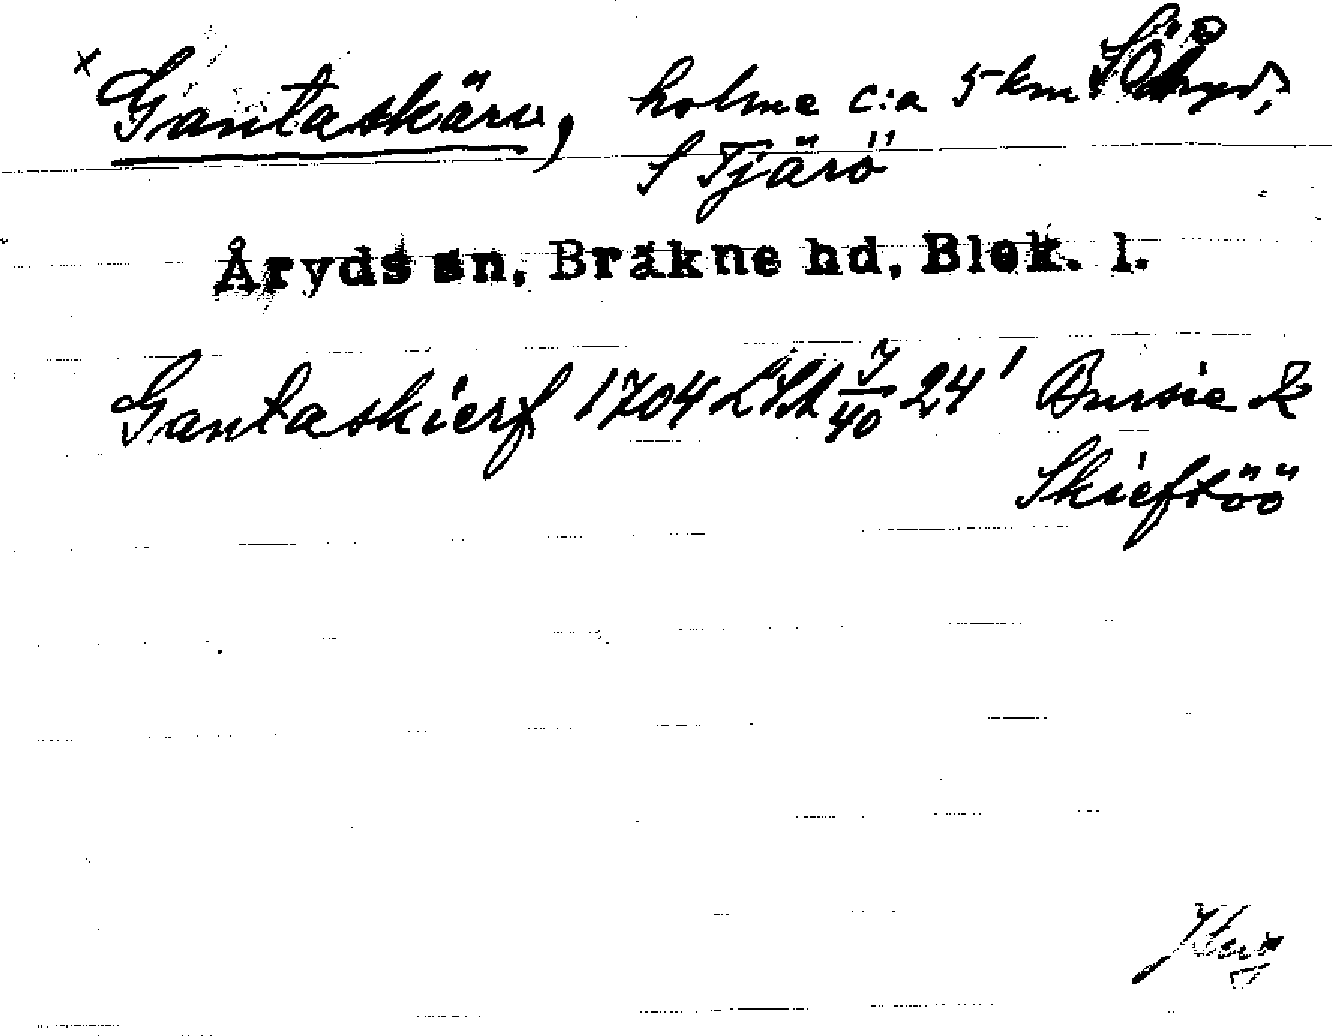 x Gantaskären, holme c:a 5 km SÖ Åryd,
S Tjärö
Åryds sn, Bräkne hd, Blek. l.
Gantaskierf 1704 LSA I/40 24' Bursie &
Skieftöö